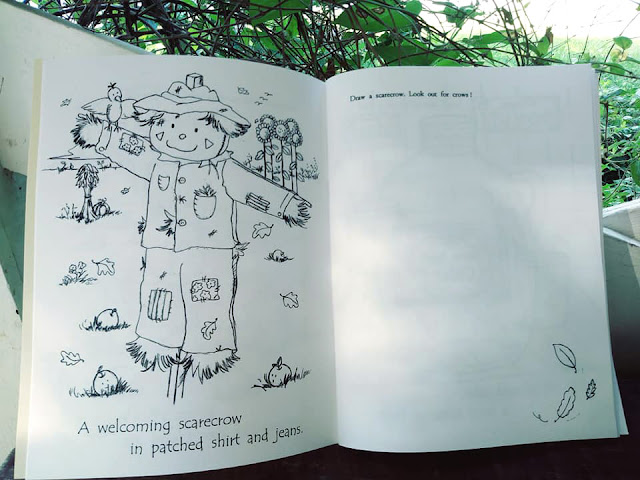 A welcoming scarecrow
in patched shirt and jeans.
Draw a scarecrow. Look out for crows!